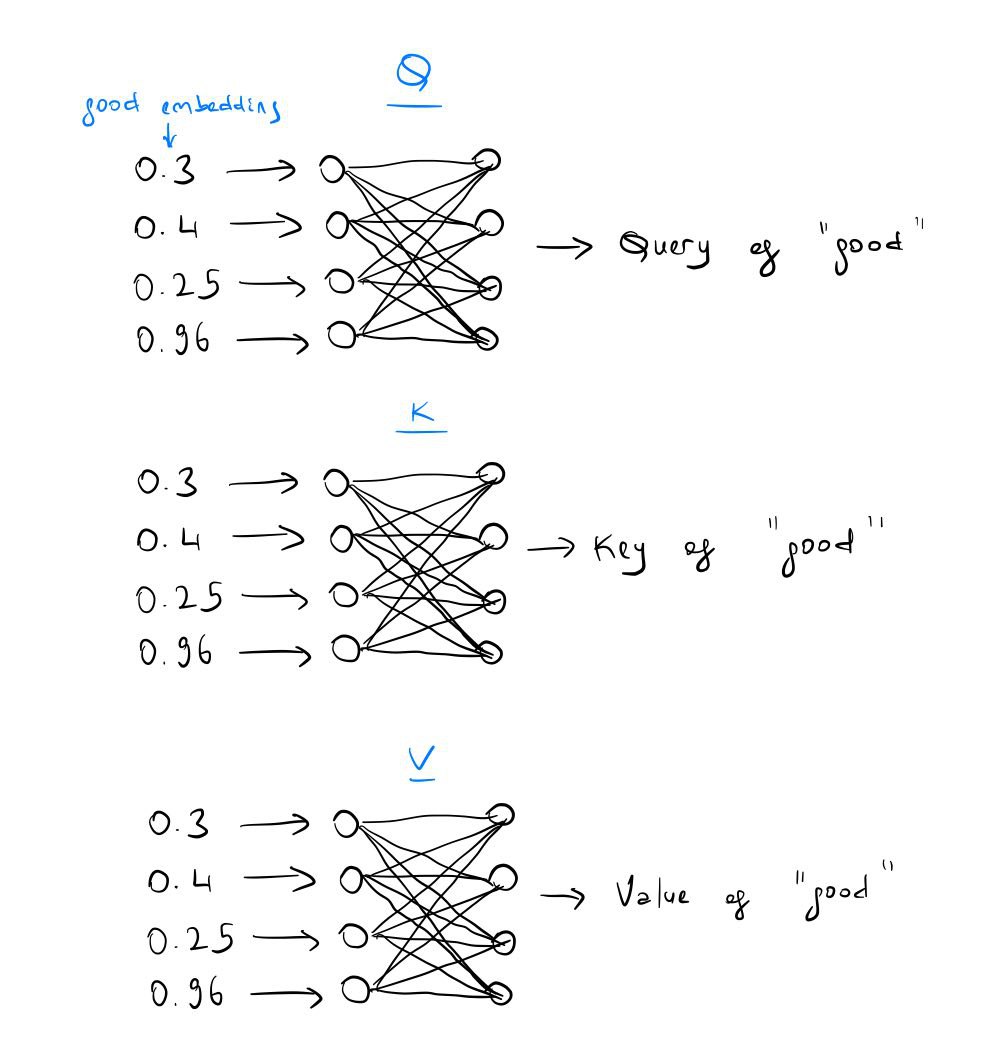 Q
good embedding
0.3
0.4
0.25
0.96
Query of "good"
K
0.3
0.4
0.25
0.96
Key of "good"
V
0.3
0.4
0.25
0.96
Value of "good"